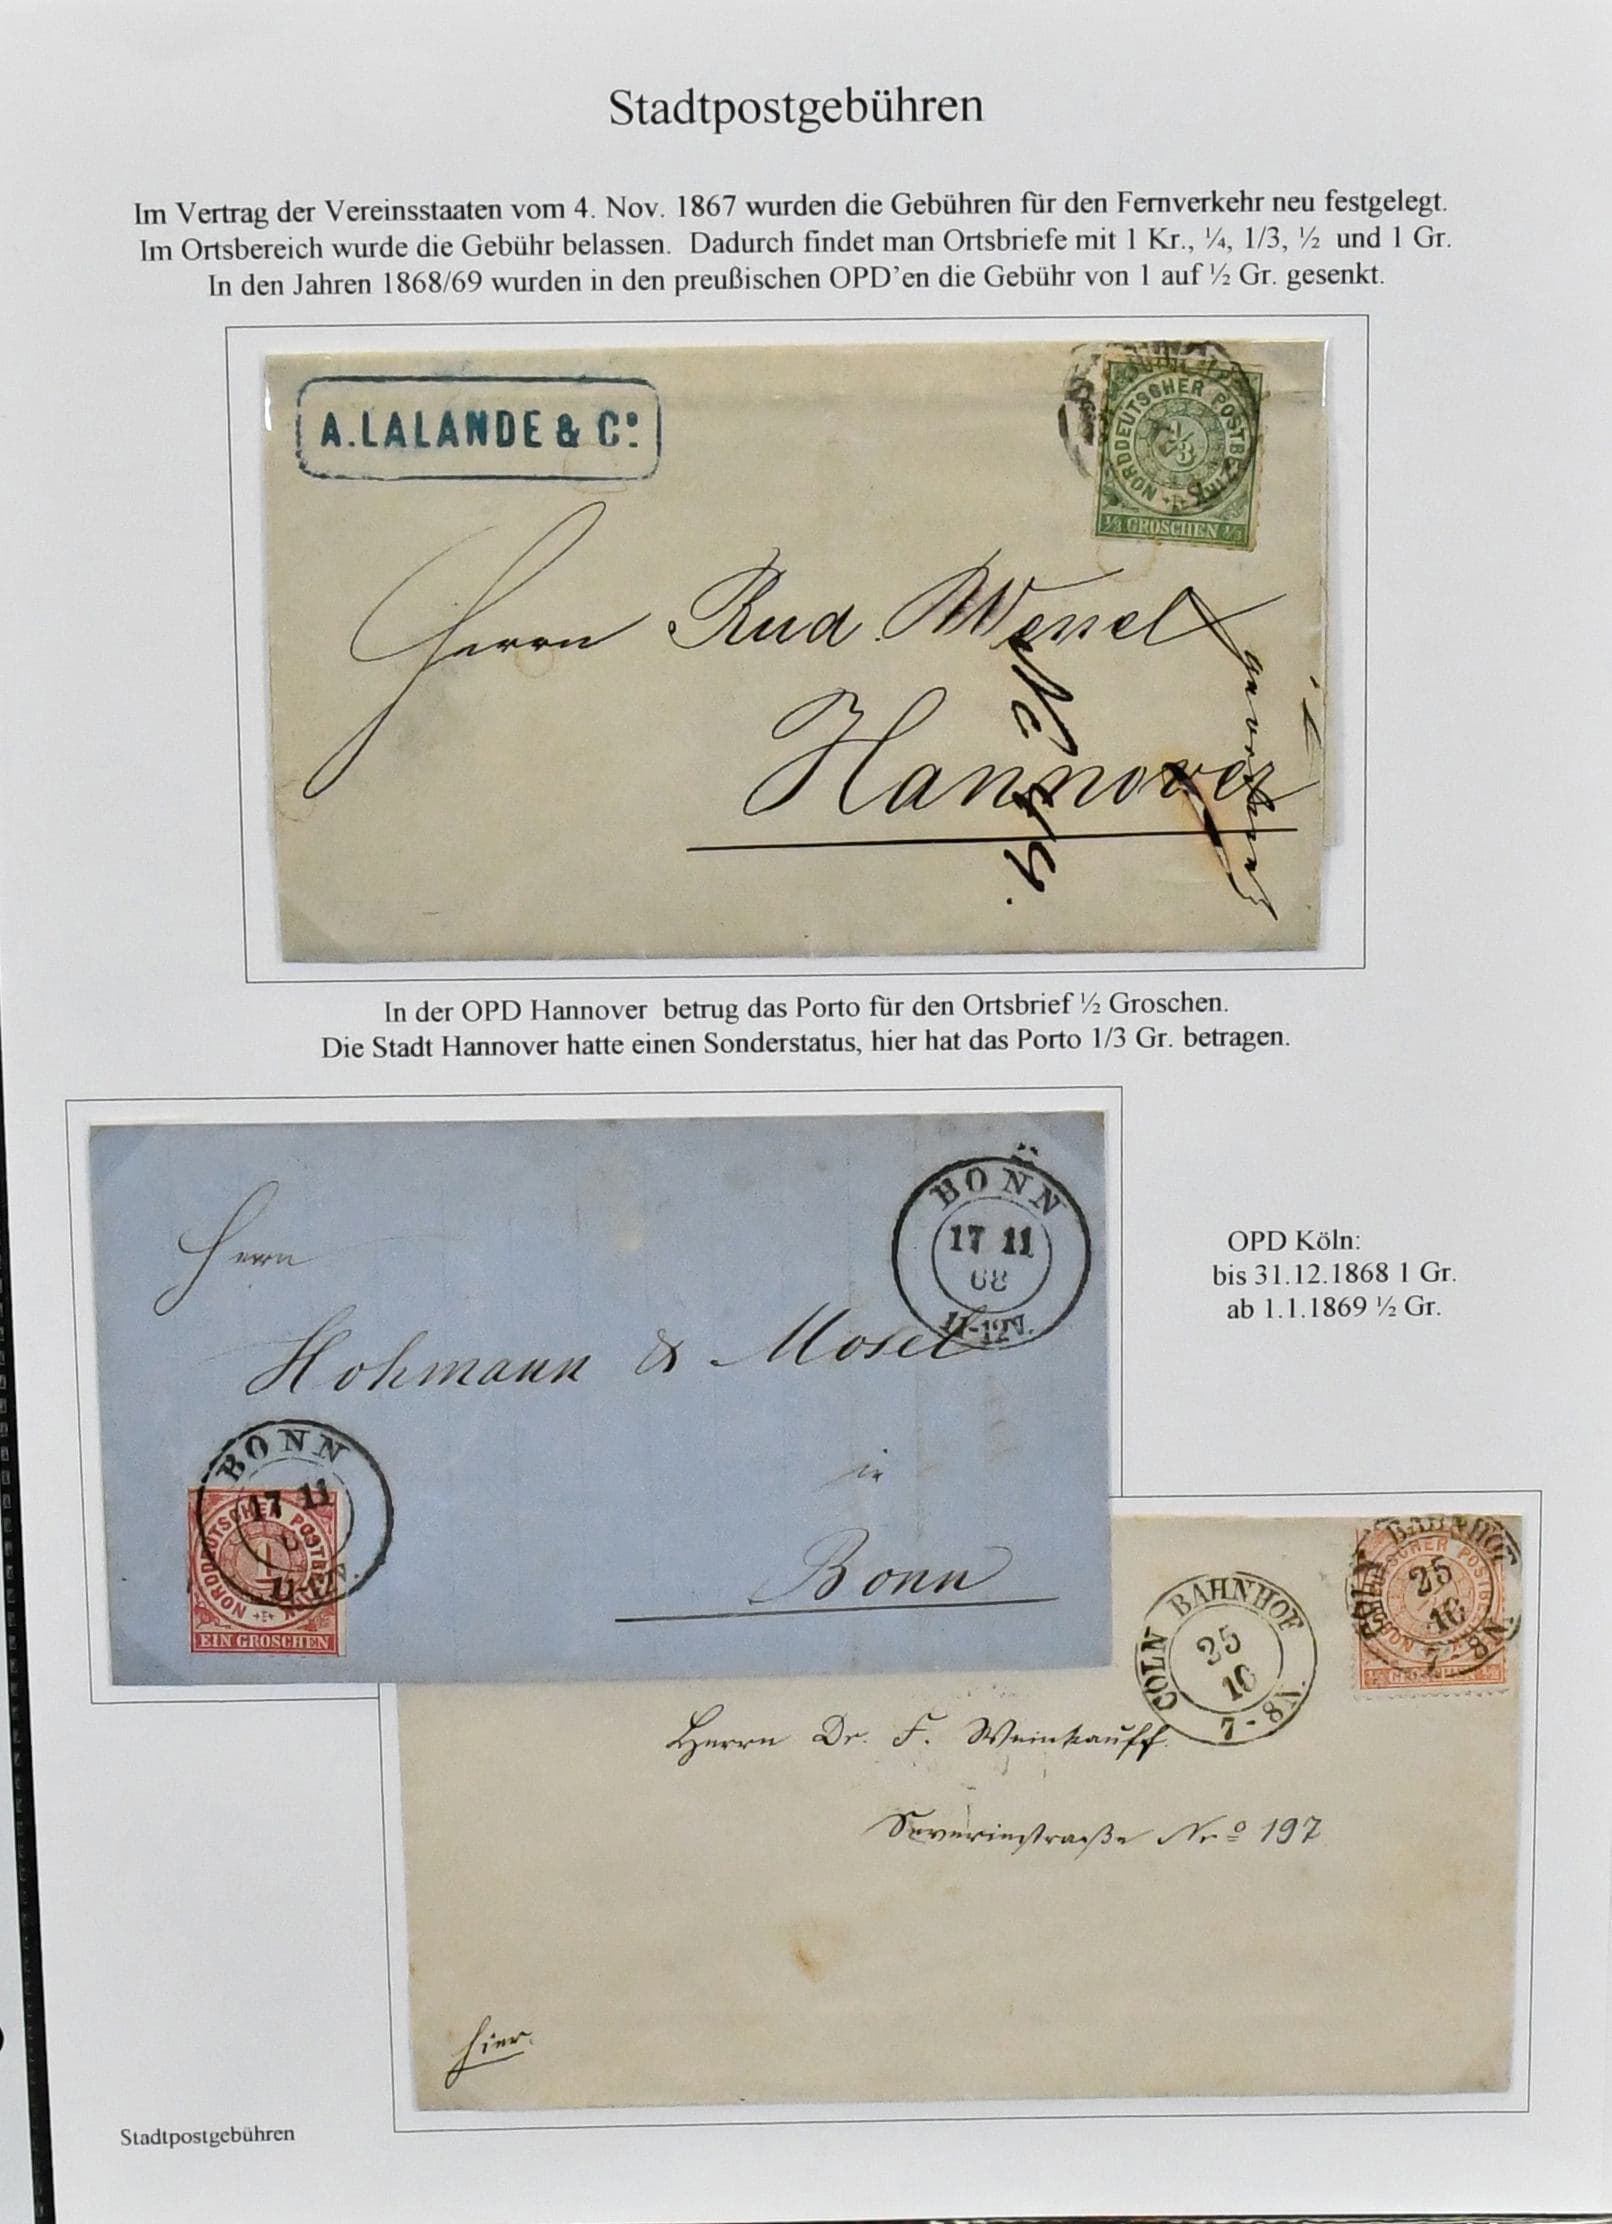 Stadtpostgebühren
Im Vertrag der Vereinsstaaten vom 4. Nov. 1867 wurden die Gebühren für den Fernverkehr neu festgelegt.
Im Ortsbereich wurde die Gebühr belassen. Dadurch findet man Ortsbriefe mit 1 Kr., ¼, 1/3, ½ und 1 Gr.
In den Jahren 1868/69 wurden in den preußischen OPD'en die Gebühr von 1 auf ½ Gr. gesenkt.
A. LALANDE & Co.
NORDDEUTSCHER POSTBEZIRK
1/3
1/3 GROSCHEN 1/3
Herrn Rud. Wessel
Hannover
In der OPD Hannover betrug das Porto für den Ortsbrief ½ Groschen.
Die Stadt Hannover hatte einen Sonderstatus, hier hat das Porto 1/3 Gr. betragen.
BONN
17 11
68
11-12V.
Herrn
Hohmann & Mosel
in
Bonn
BONN
17 11
11-12V.
NORDDEUTSCHER POSTBEZIRK
1
EIN GROSCHEN
OPD Köln:
bis 31.12.1868 1 Gr.
ab 1.1.1869 ½ Gr.
CÖLN BAHNHOF
25
10
7-8N.
CÖLN BAHNHOF
25
10
7-8N.
NORDDEUTSCHER POSTBEZIRK
½ GROSCHEN ½
Herrn Dr. F. Weinkauff.
Severinstraße Nro 197
hier.
Stadtpostgebühren